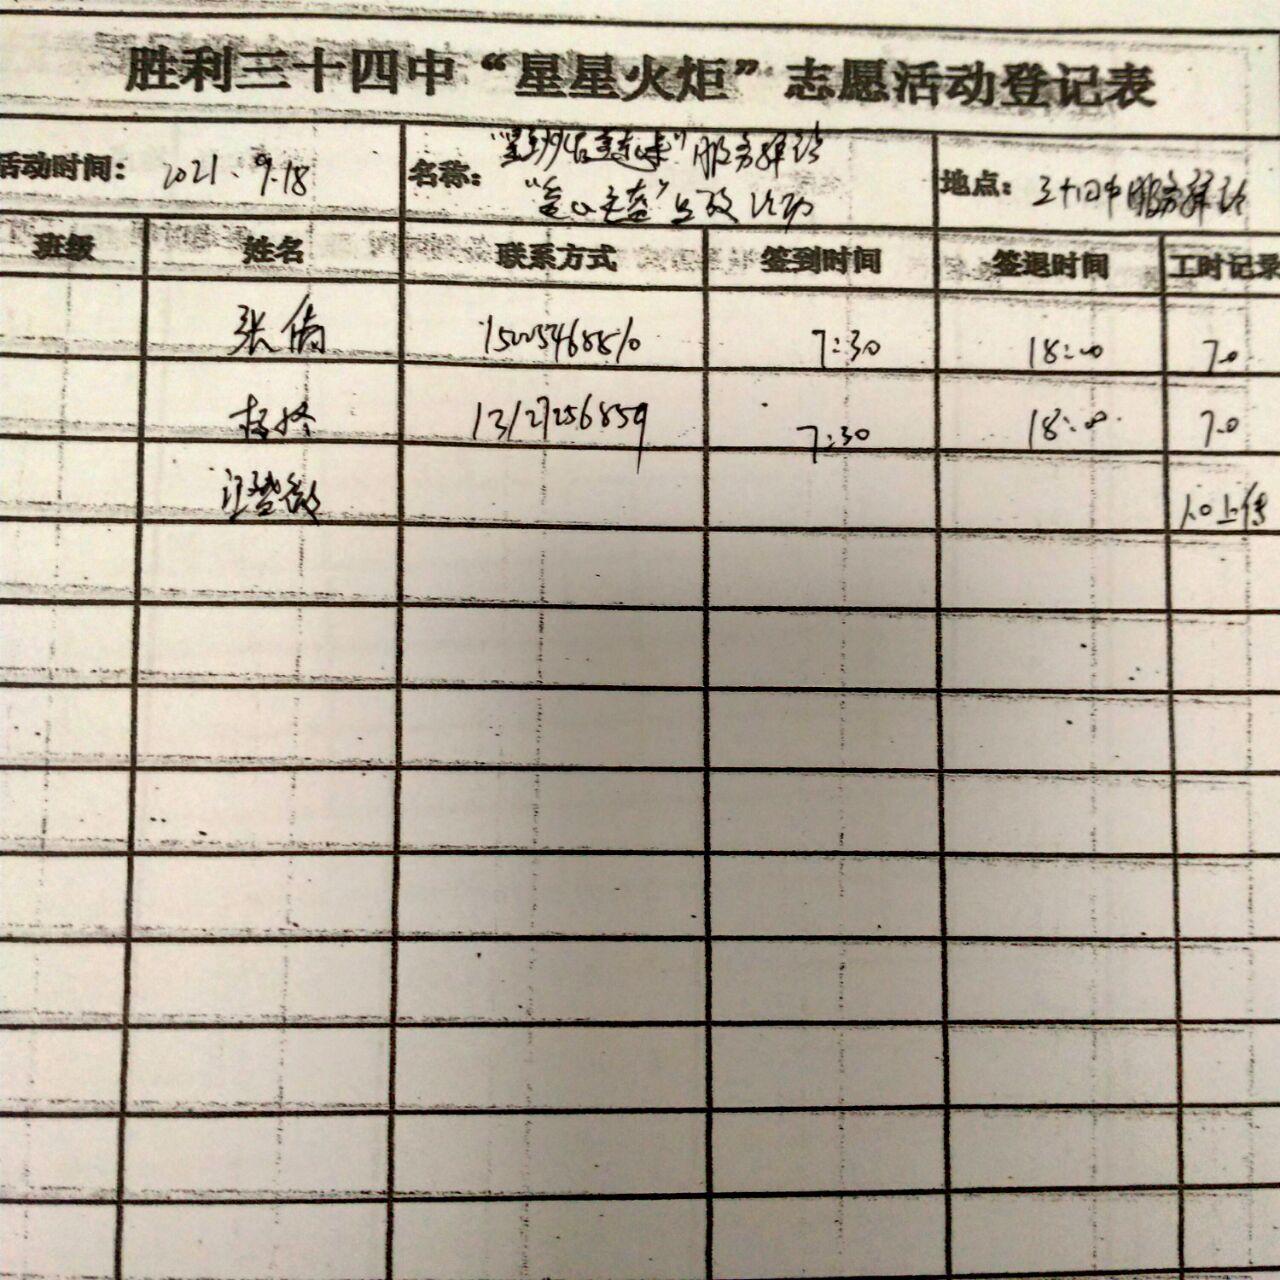 胜利三十四中“星星火炬”志愿活动登记表
活动时间： 2021.9.18 名称： 服务驿站 地点： 三十四中服务驿站
班级 姓名 联系方式 签到时间 签退时间 工时记录
张倩 15005468810 7:30 18:00 7.0
13127256859 7:30 18:00 7.0
汪 上传